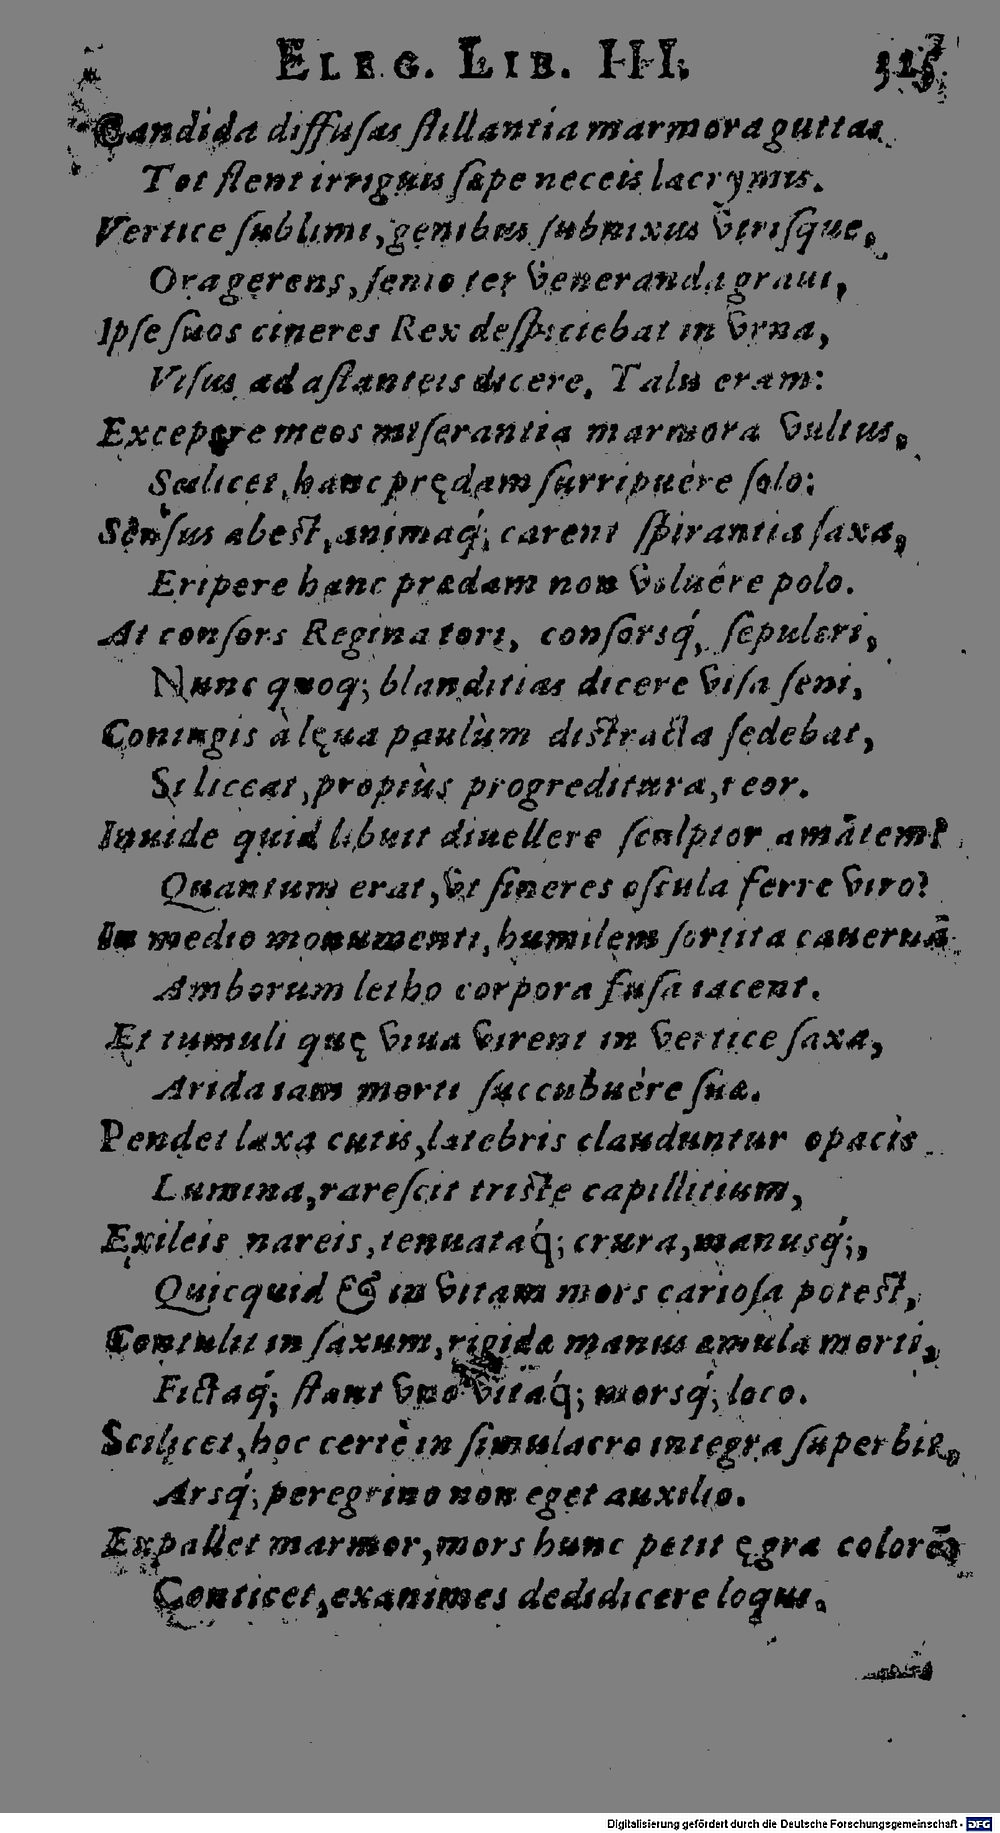 ELEG. LIB. III. 325
Candida diffusas stillantia marmora guttas
Tot flent irriguis sæpe neceis lacrymis.
Vertice sublimi, genibus subnixus vtrisque,
Ora gerens, senio ter veneranda graui,
Ipse suos cineres Rex despiciebat in vrna,
Visus ad astanteis dicere, Talis eram:
Excepere meos miserantia marmora vultus,
Scilicet, hanc prędam surripuêre solo:
Sensus abest, animaq́; carent spirantia saxa,
Eripere hanc prædam non voluêre polo.
At consors Regina tori, consorsq́, sepulcri,
Nunc quoq; blanditias dicere visa seni,
Coniugis à lęua paulùm distracta sedebat,
Si liceat, propiùs progreditura, reor.
Inuide quid libuit diuellere sculptor amātem?
Quantum erat, vt sineres oscula ferre viro?
In medio monumenti, humilem sortita cauernā
Amborum letho corpora fusa iacent.
Et tumuli quę viua virent in vertice saxa,
Arida iam morti succubuêre suæ.
Pendet laxa cutis, latebris clauduntur opacis
Lumina, rarescit triste capillitium,
Exileis nareis, tenuataq́; crura, manusq́;,
Quicquid & in vitam mors cariosa potest,
Contulit in saxum, rigidæ manus æmula morti,
Fictaq́; stant vno vitaq́; morsq́; loco.
Scilicet, hoc certè in simulacro integra superbit,
Arsq́; peregrino non eget auxilio.
Expallet marmor, mors hunc petit ęgra colorē
Conticet, exanimes dedidicere loqui.
Digitalisierung gefördert durch die Deutsche Forschungsgemeinschaft - DFG